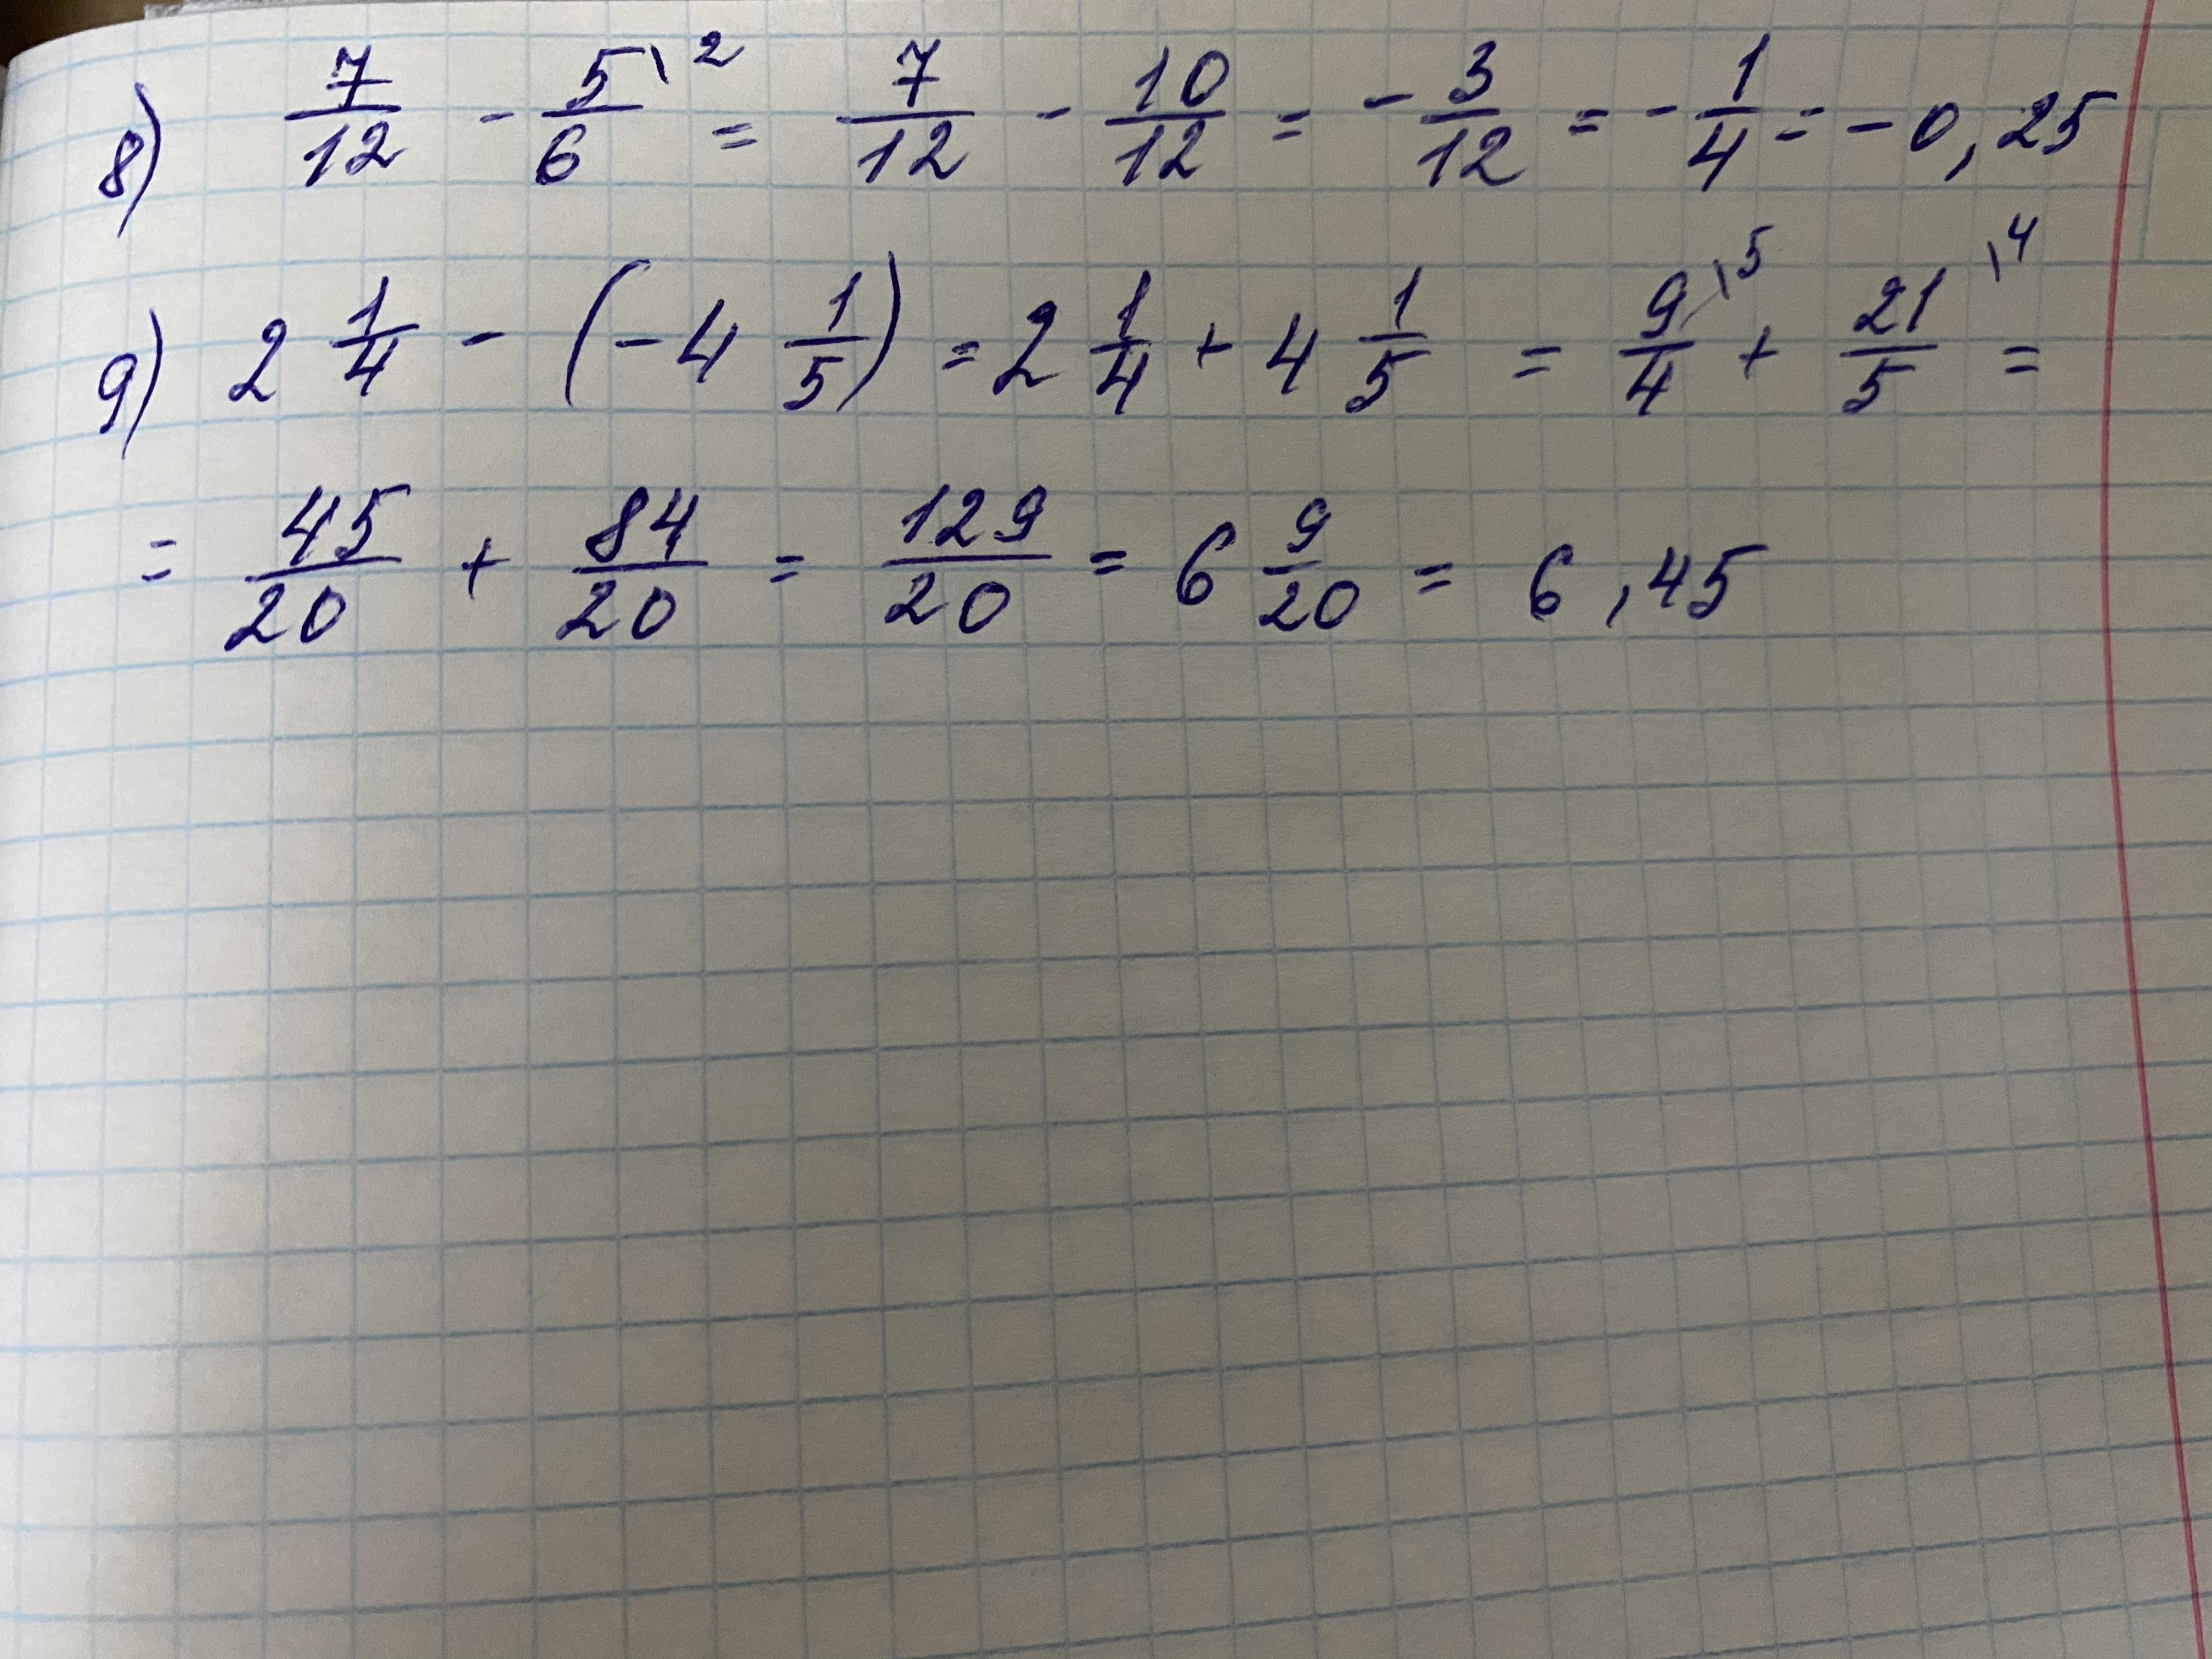 8) 7/12 - 5/6 \2 = 7/12 - 10/12 = - 3/12 = - 1/4 = - 0,25
9) 2 1/4 - (- 4 1/5) = 2 1/4 + 4 1/5 = 9/4 \5 + 21/5 \4 =
= 45/20 + 84/20 = 129/20 = 6 9/20 = 6,45